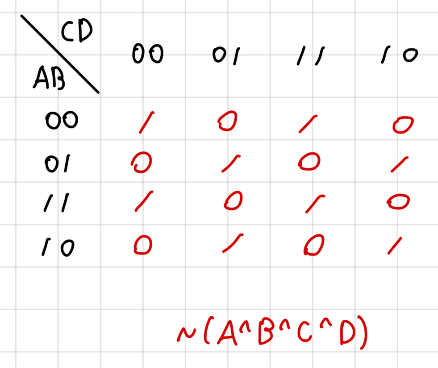 CD
00 01 11 10
AB
00 1 0 1 0
01 0 1 0 1
11 1 0 1 0
10 0 1 0 1
~(A^B^C^D)